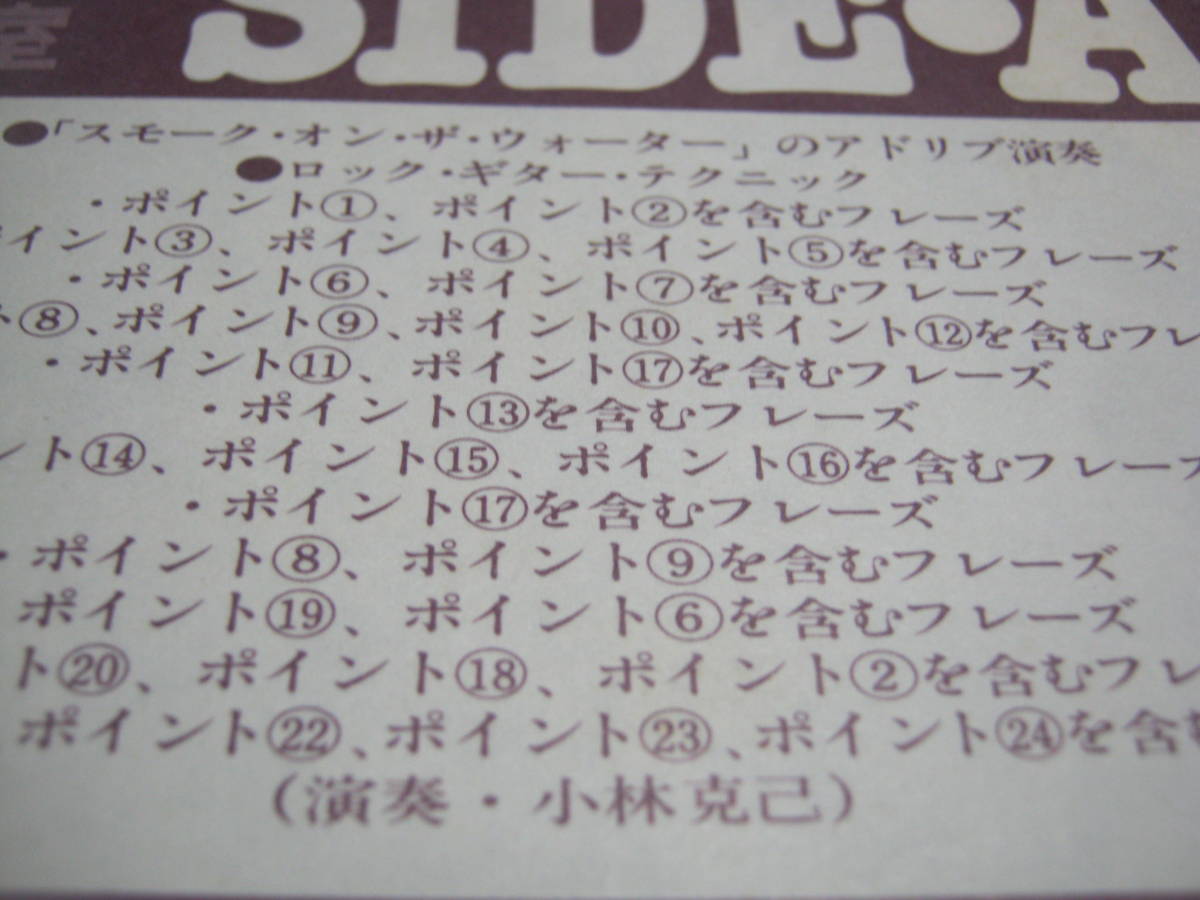 室
SIDE•A
●「スモーク・オン・ザ・ウォーター」のアドリブ演奏
●ロック・ギター・テクニック
・ポイント①、ポイント②を含むフレーズ
イント③、ポイント④、ポイント⑤を含むフレーズ
・ポイント⑥、ポイント⑦を含むフレーズ
ト⑧、ポイント⑨、ポイント⑩、ポイント⑫を含むフレ
・ポイント⑪、ポイント⑰を含むフレーズ
・ポイント⑬を含むフレーズ
ント⑭、ポイント⑮、ポイント⑯を含むフレーズ
・ポイント⑰を含むフレーズ
・ポイント⑧、ポイント⑨を含むフレーズ
ポイント⑲、ポイント⑥を含むフレーズ
ト⑳、ポイント⑱、ポイント②を含むフレ
ポイント㉒、ポイント㉓、ポイント㉔を含む
（演奏・小林克己）